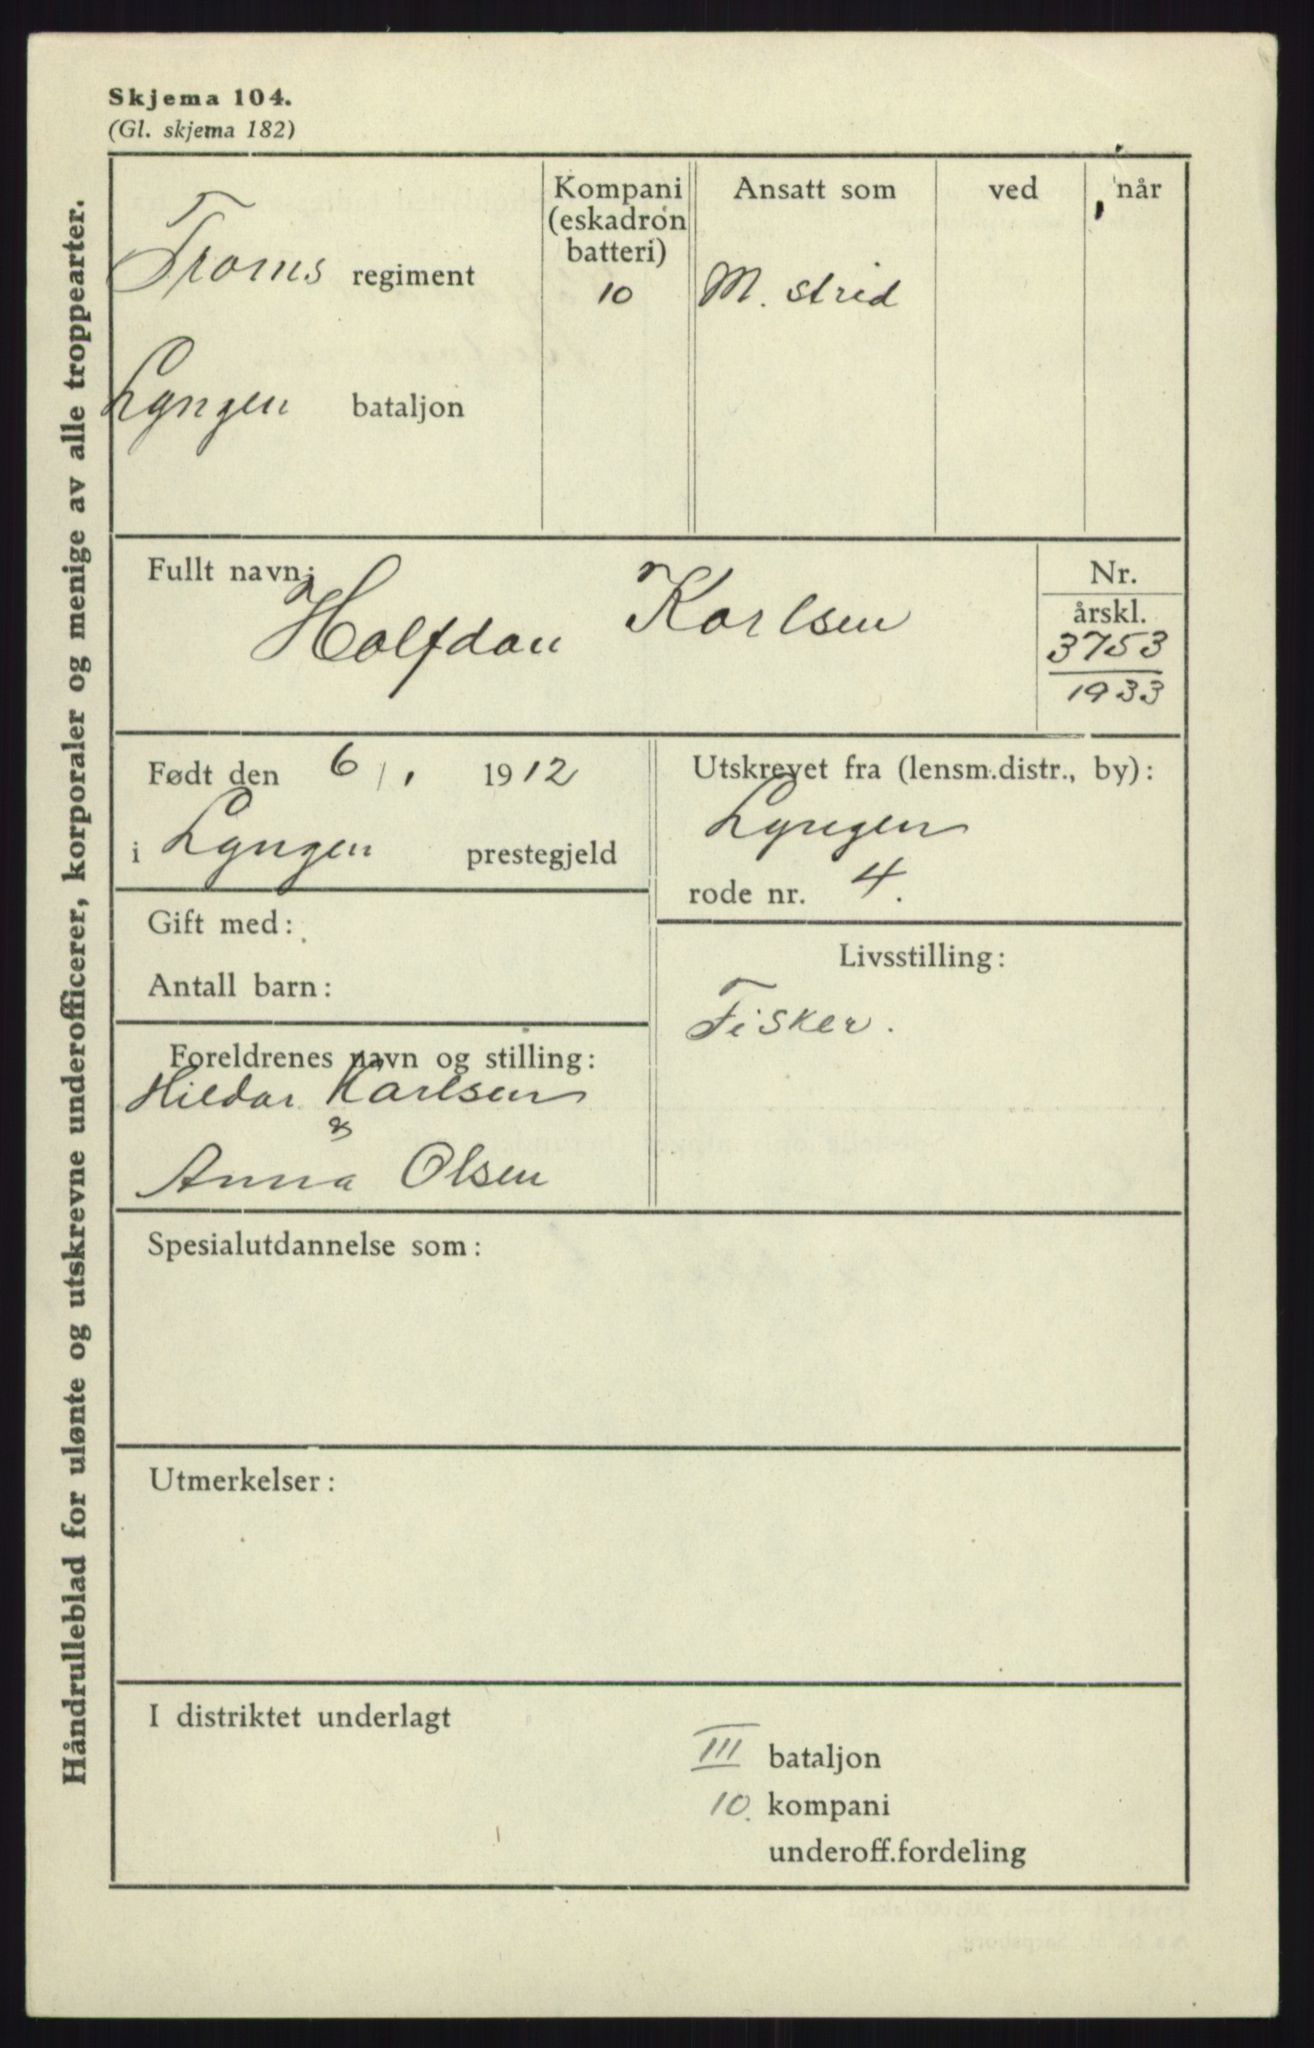 Skjema 104.
(Gl. skjema 182)
Håndrulleblad for ulønte og utskrevne underofficerer, korporaler og menige av alle troppearter.
Troms regiment
Lyngen bataljon
Kompani
(eskadron
batteri)
10
Ansatt som
M. strid
ved
når
Fullt navn:
Halfdan Karlsen
Nr.
årskl.
3753
1933
Født den 6/1 1912
i Lyngen prestegjeld
Utskrevet fra (lensm.distr., by):
Lyngen
rode nr. 4.
Gift med:
Antall barn:
Livsstilling:
Fisker.
Foreldrenes navn og stilling:
Hildar Karlsen
&
Anna Olsen
Spesialutdannelse som:
Utmerkelser:
I distriktet underlagt
III bataljon
10. kompani
underoff.fordeling